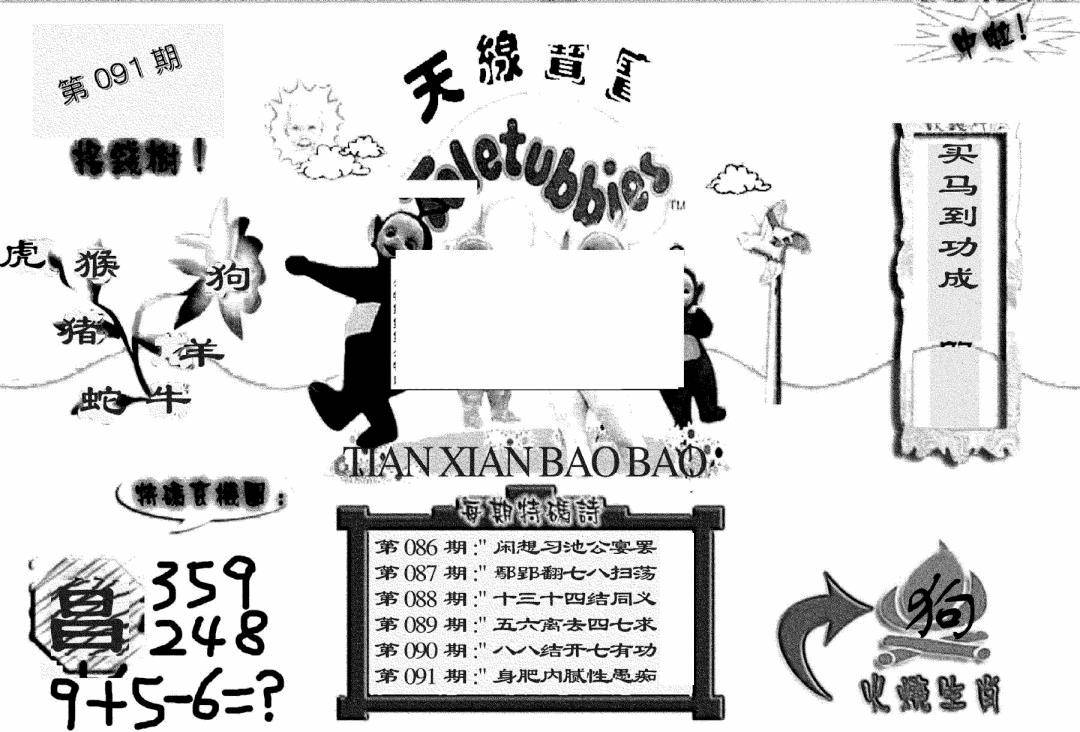 第 091 期
天線寶
中啦!
Teletubbies
TM
虎
猴
狗
猪
羊
蛇
牛
买马到功成
TIAN XIAN BAO BAO
每期特碼詩
第 086 期:" 闲想习池公宴罢
第 087 期:" 鄢郢翻七八扫荡
第 088 期:" 十三十四结同义
第 089 期:" 五六离去四七求
第 090 期:" 八八结开七有功
第 091 期:" 身肥内腻性愚痴
359
248
9+5-6=?
狗
火燒生肖